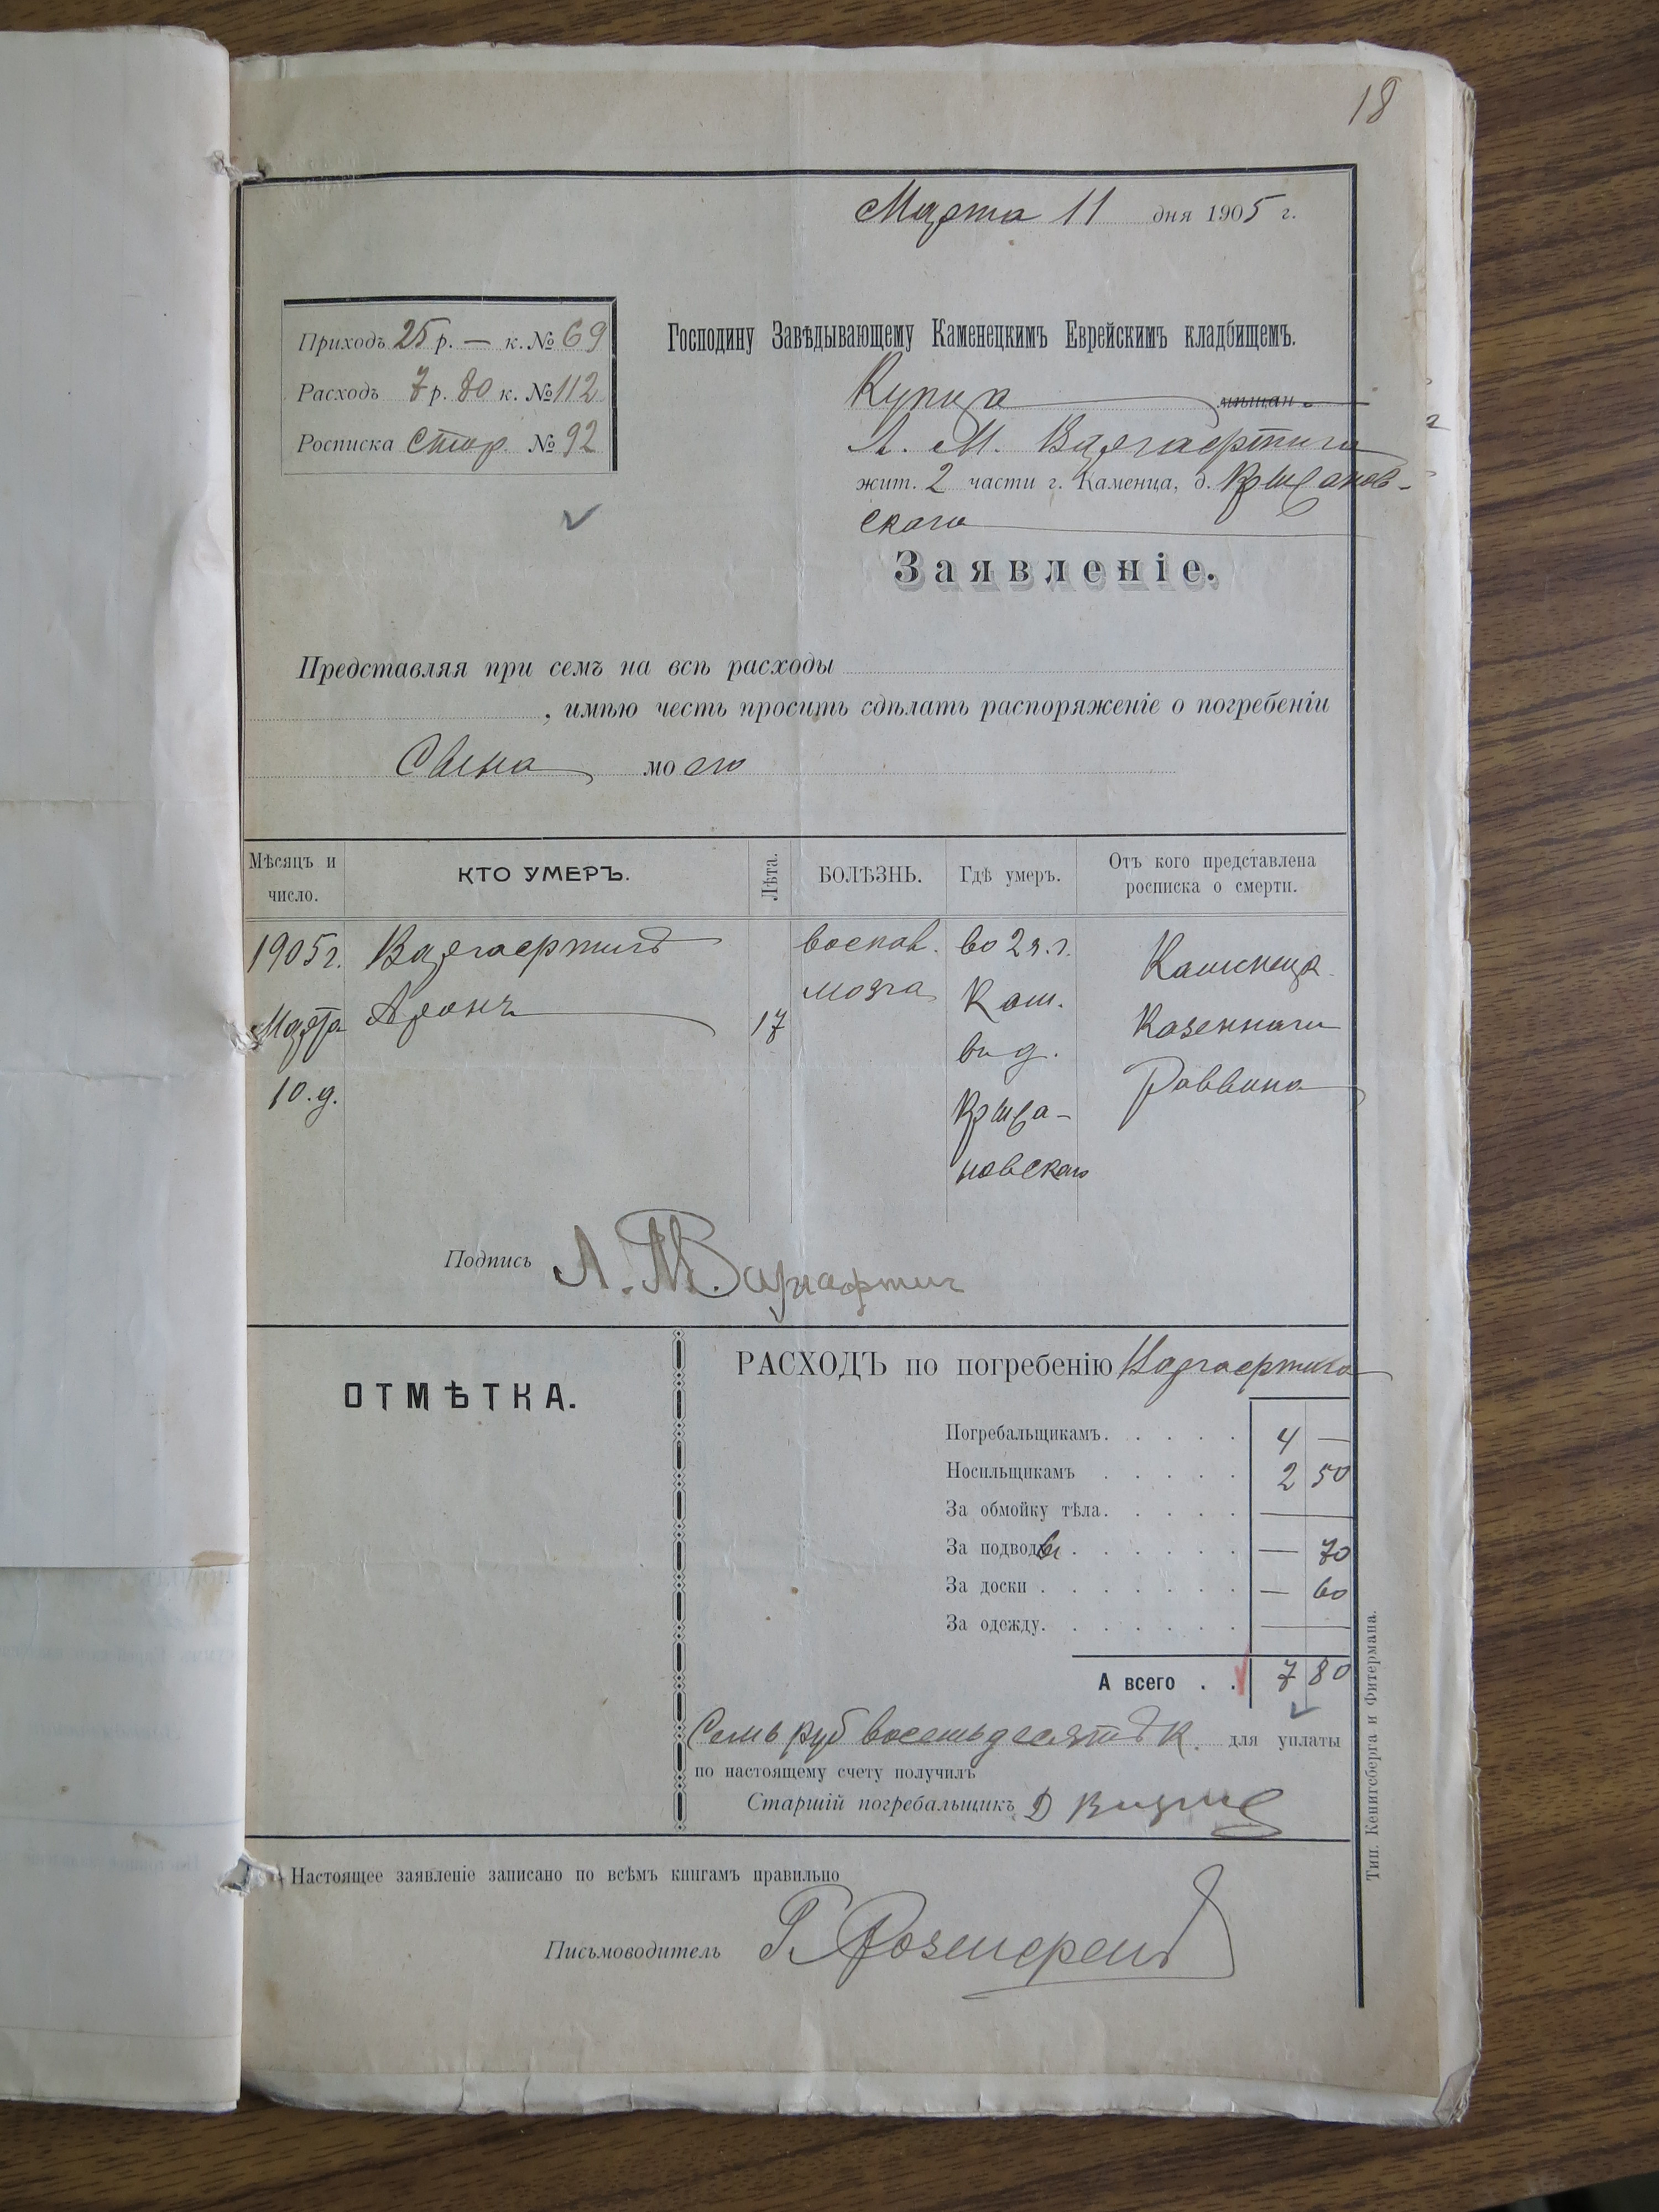 18
Марта 11 дня 1905 г.
Приходъ 25 р. — к. № 69
Расходъ 7 р. 80 к. № 112
Росписка стор. № 92
Господину Завѣдывающему Каменецкимъ Еврейскимъ кладбищемъ.
Купца мѣщан
А. М. Варгафтига
жит. 2 части г. Каменца, д. Крыжанов-
скаго
Заявленіе.
Представляя при семъ на всѣ расходы
, имѣю честь просить сдѣлать распоряженіе о погребеніи
Сына моего
Мѣсяцъ и число. КТО УМЕРЪ. Лѣта. БОЛѢЗНЬ. Гдѣ умеръ. Отъ кого представлена росписка о смерти.
1905 г. Варгафтигъ воспал. во 2 ч. г. Каменецк.
Марта Аронъ 17 мозга Кам. Казеннаго
10 д. въ д. Раввина
Крыжа-
новскаго
Подпись А. М. Варгафтиг
ОТМѢТКА.
РАСХОДЪ по погребенію Варгафтига
Погребальщикамъ. 4 —
Носильщикамъ 2 50
За обмойку тѣла. —
За подводы — 70
За доски — 60
За одежду. —
А всего 7 80
Семь руб восемьдесятъ к. для уплаты
по настоящему счету получилъ
Старшій погребальщикъ Д
Настоящее заявленіе записано по всѣмъ книгамъ правильно
Письмоводитель
Тип. Кенигсберга и Фитермана.